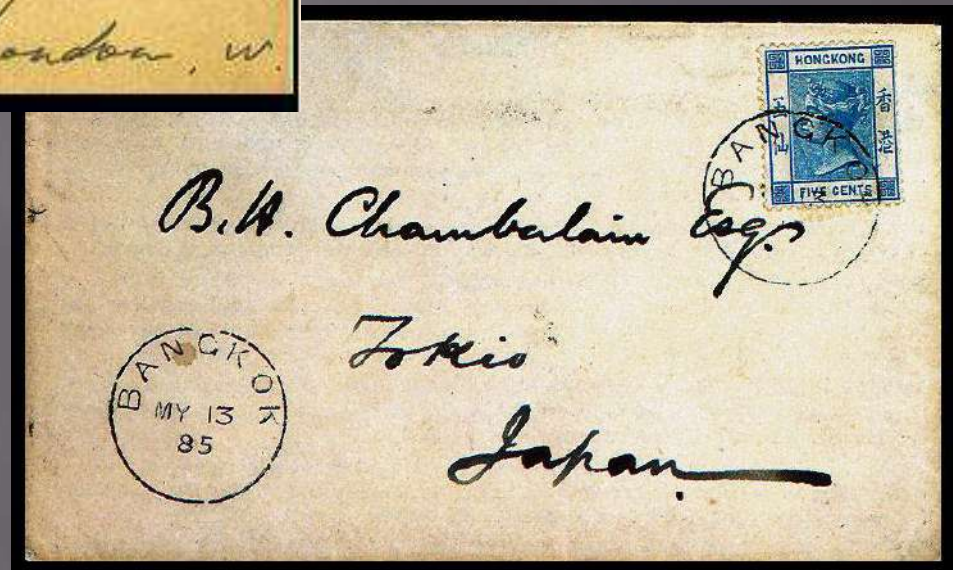 London, W.
HONGKONG
香港
FIVE CENTS
BANGKOK
B.H. Chamberlain Esq.
Tokio
Japan
BANGKOK
MY 13
85